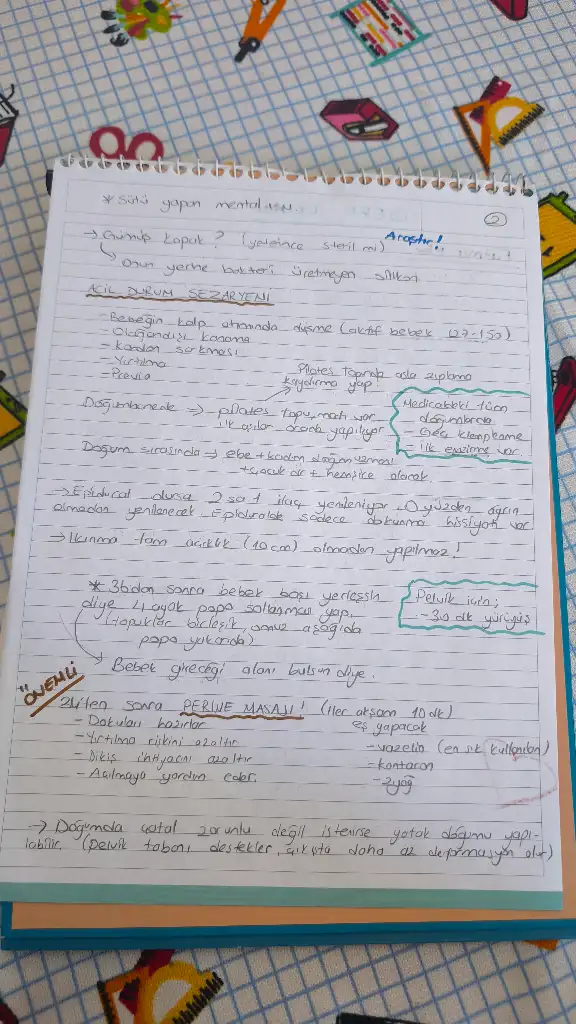 ②
* Sütü yapan mental
→ Gümüş kapak? (yeterince steril mi) Araştır!
↳ Onun yerine bakteri üretmeyen silikon
ACİL DURUM SEZARYENİ
- Bebeğin kalp atımında düşme (aktif bebek 127-150)
- Olağandışı kanama
- Kordon sarkması
- Yırtılma
- Previa
Pilates topunda asla zıplama
kaydırma yap
Doğumhanede → pilates topu, matı var
ilk aşılar orada yapılıyor
Medicaldeki tüm
doğumlarda
- Geç klempleme
- ilk emzirme var
Doğum sırasında → ebe + kadın doğum uzmanı
+ çocuk dr + hemşire olacak.
→ Epidural olursa 2 saat ilaç yenileniyor. O yüzden ağrın
olmadan yenilenecek Epiduralde sadece dokunma hissiyatı var
→ Ikınma tam açıklık (10 cm) olmadan yapılmaz!
* 36dan sonra bebek başı yerleşsin
diye 4 ayak popo sallanması yap.
(topuklar birleşik, omuz aşağıda
popo yukarıda)
↳ Bebek gireceği alanı bulsun diye.
Pelvik için;
- 30 dk yürüyüş
"ÖNEMLİ
sonra PERİNE MASAJI! (Her akşam 10 dk)
eş yapacak
- Dokuları hazırlar
- Yırtılma riskini azaltır
- Dikiş ihtiyacını azaltır
- Açılmaya yardım eder.
- vazelin (en sık kullanılan)
- kantaron
- zyağ
→ Doğumda çatal zorunlu değil istenirse yatak doğumu yapı-
labilir. (pelvik tabanı destekler, çıkışta daha az deformasyon olur)